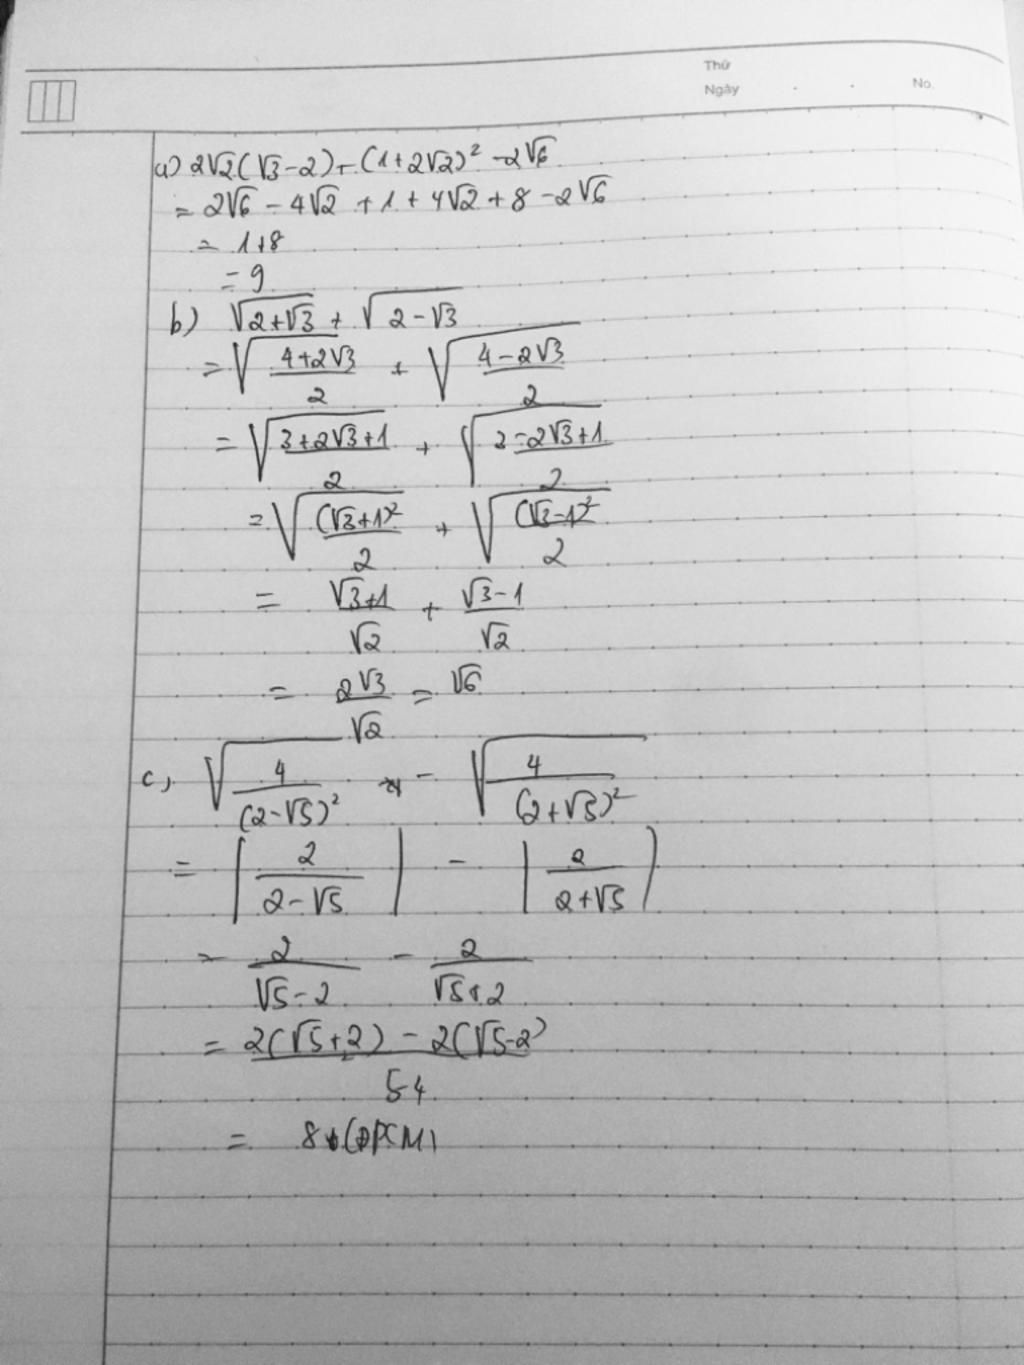 Thứ
Ngày . . No.
a) 2√2(√3-2)+(1+2√2)² -2√6
= 2√6 - 4√2 + 1 + 4√2 + 8 - 2√6
= 1+8
= 9
b) √(2+√3) + √(2-√3)
= √((4+2√3)/2) + √((4-2√3)/2)
= √((3+2√3+1)/2) + √((3-2√3+1)/2)
= √((√3+1)²/2) + √((√3-1)²/2)
= (√3+1)/√2 + (√3-1)/√2
= 2√3/√2 = √6
c, √(4/(2-√5)²) - √(4/(2+√5)²)
= |2/(2-√5)| - |2/(2+√5)|
= 2/(√5-2) - 2/(√5+2)
= (2(√5+2) - 2(√5-2))/(5-4)
= 8 (ĐPCM)